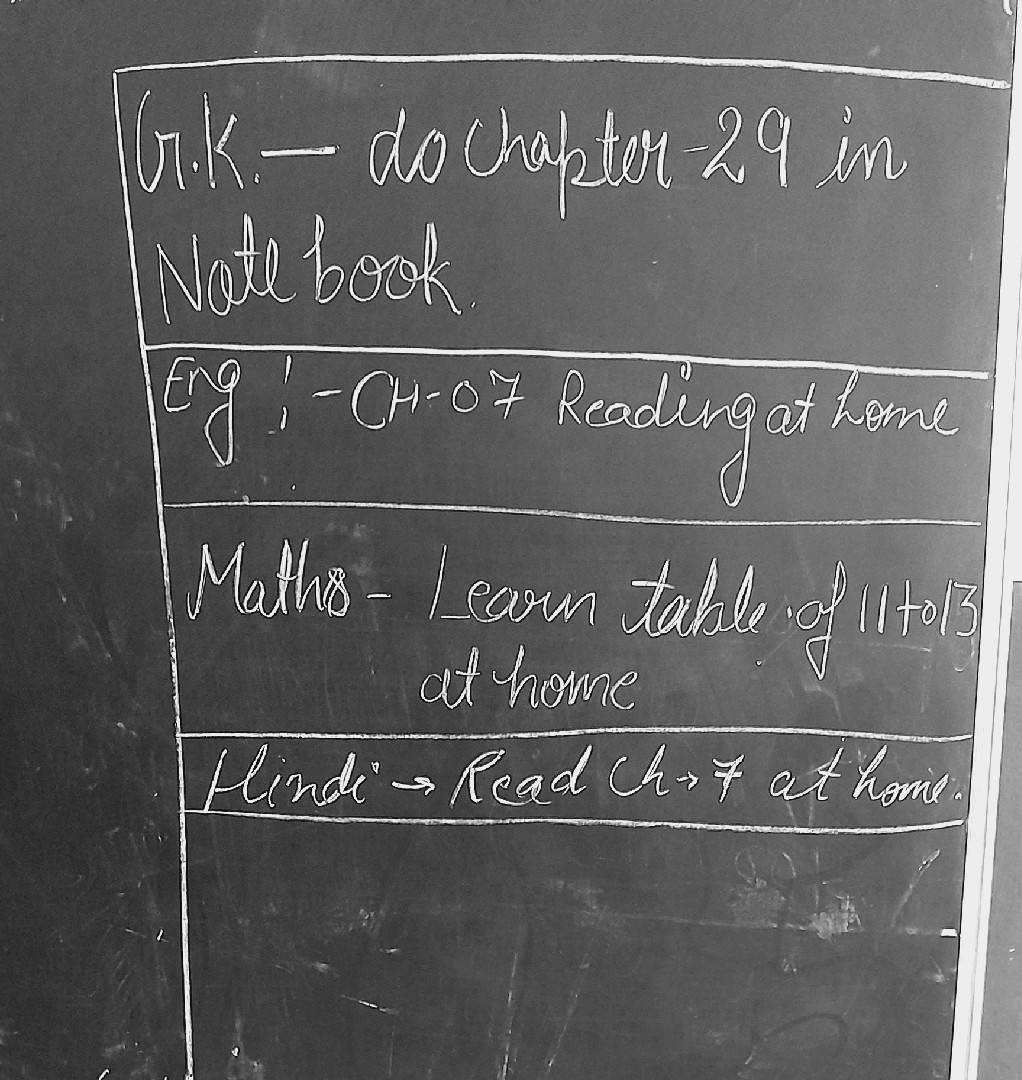 G.K. — do Chapter-29 in
Note book.
Eng :- CH-07 Reading at home
Maths - Learn table of 11 to 13
at home
Hindi → Read Ch → 7 at home.